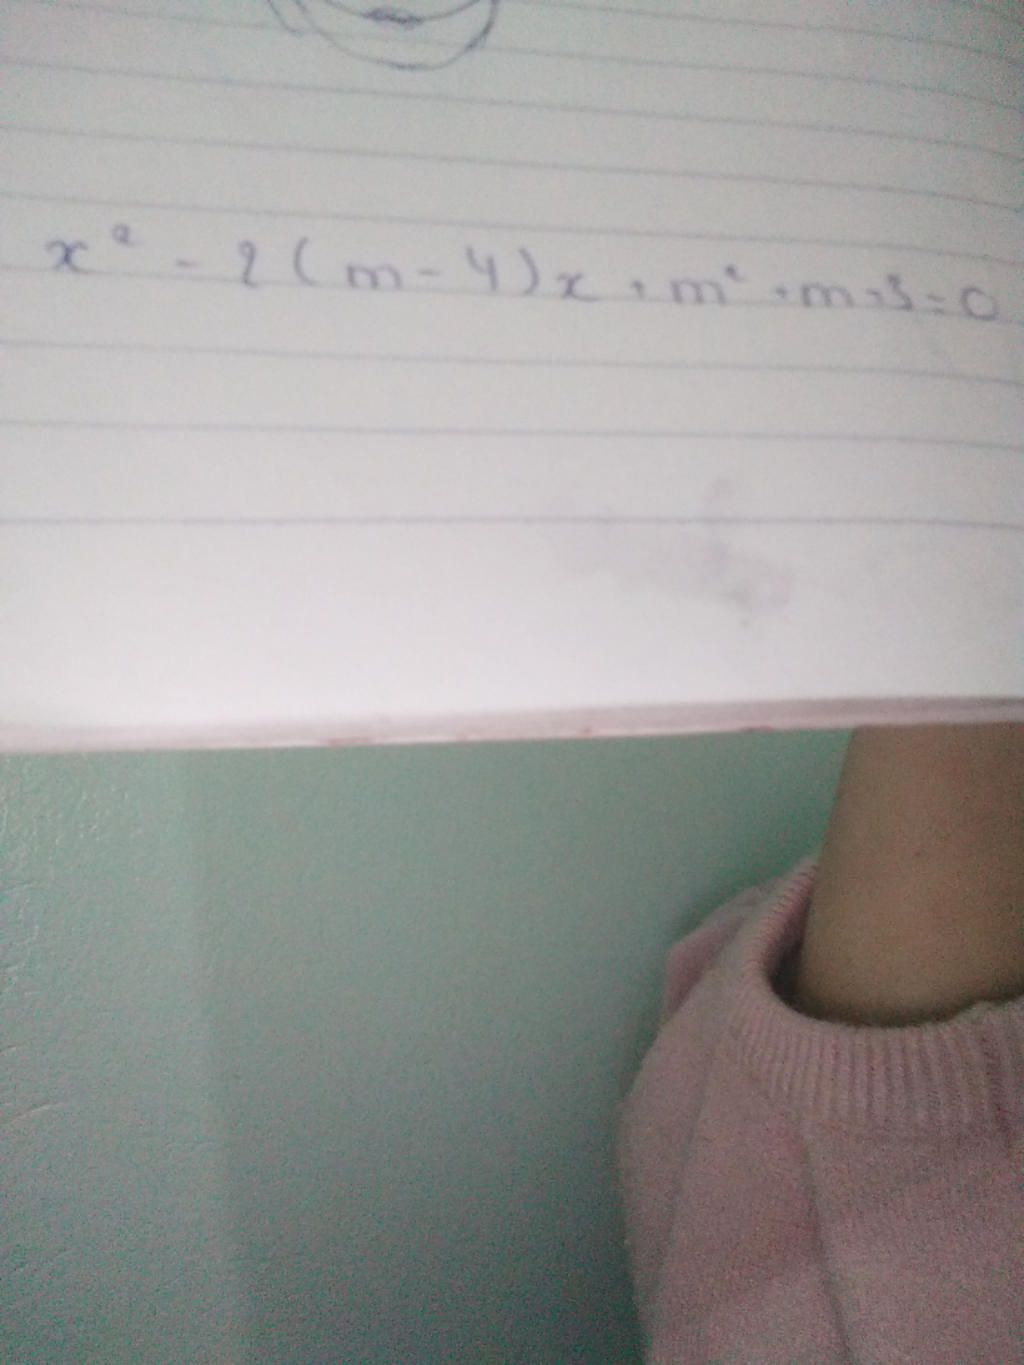 x² - 2(m-4)x + m² + m + 3 = 0